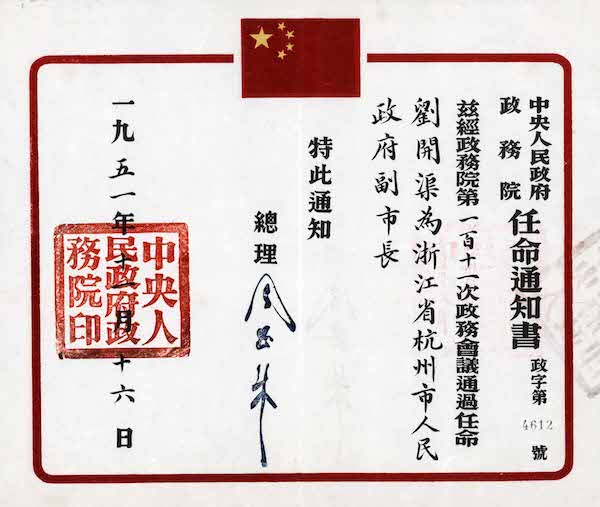 中央人民政府
政務院
任命通知書
政字第4612號
茲經政務院第一百十一次政務會議通過任命
劉開渠為浙江省杭州市人民
政府副市長
特此通知
總理 周恩来
一九五一年十一月十六日
中央人
民政府政
務院印